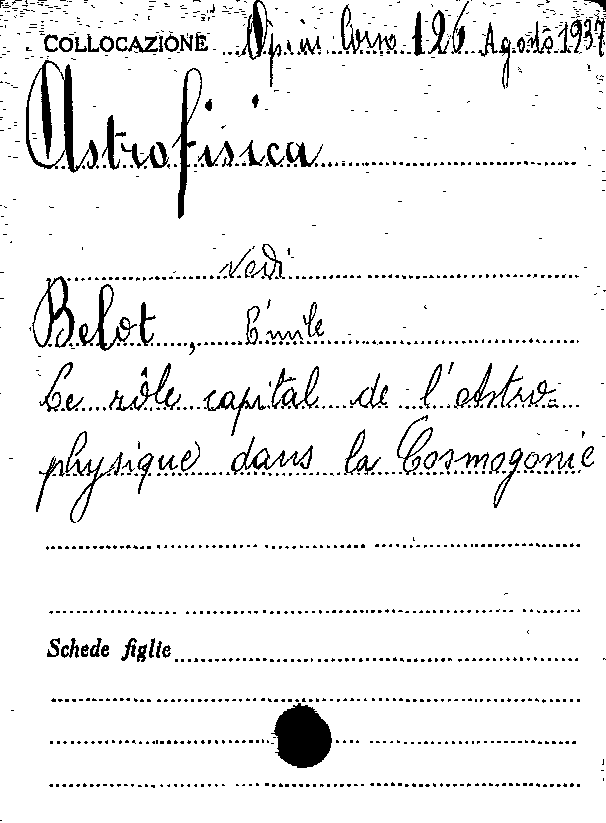 COLLOCAZIONE Opin Corso 126 Agosto 1937
Astrofisica
Vedi
Belot, Émile
Le rôle capital de l'Astro-
physique dans la Cosmogonie
Schede figlie